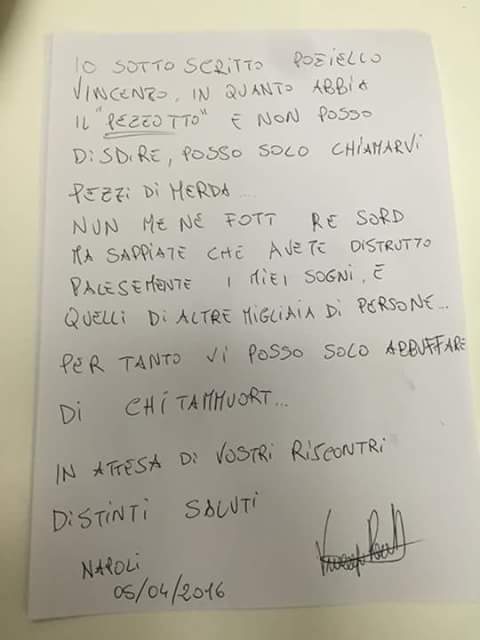 IO SOTTO SCRITTO POZIELLO
VINCENZO, IN QUANTO ABBIA
IL "PEZZOTTO" E NON POSSO
DISDIRE, POSSO SOLO CHIAMARVI
PEZZI DI MERDA...
NUN ME NE FOTT RE SORD
MA SAPPIATE CHE AVETE DISTRUTTO
PALESEMENTE I MIEI SOGNI, E
QUELLI DI ALTRE MIGLIAIA DI PERSONE...
PER TANTO VI POSSO SOLO ABBUFFARE
DI CHITAMMUORT...
IN ATTESA DI VOSTRI RISCONTRI
DISTINTI SALUTI
NAPOLI
05/04/2016